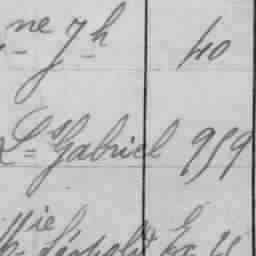 ne 7h 40
Ls Gabriel 959
Mie Léopold